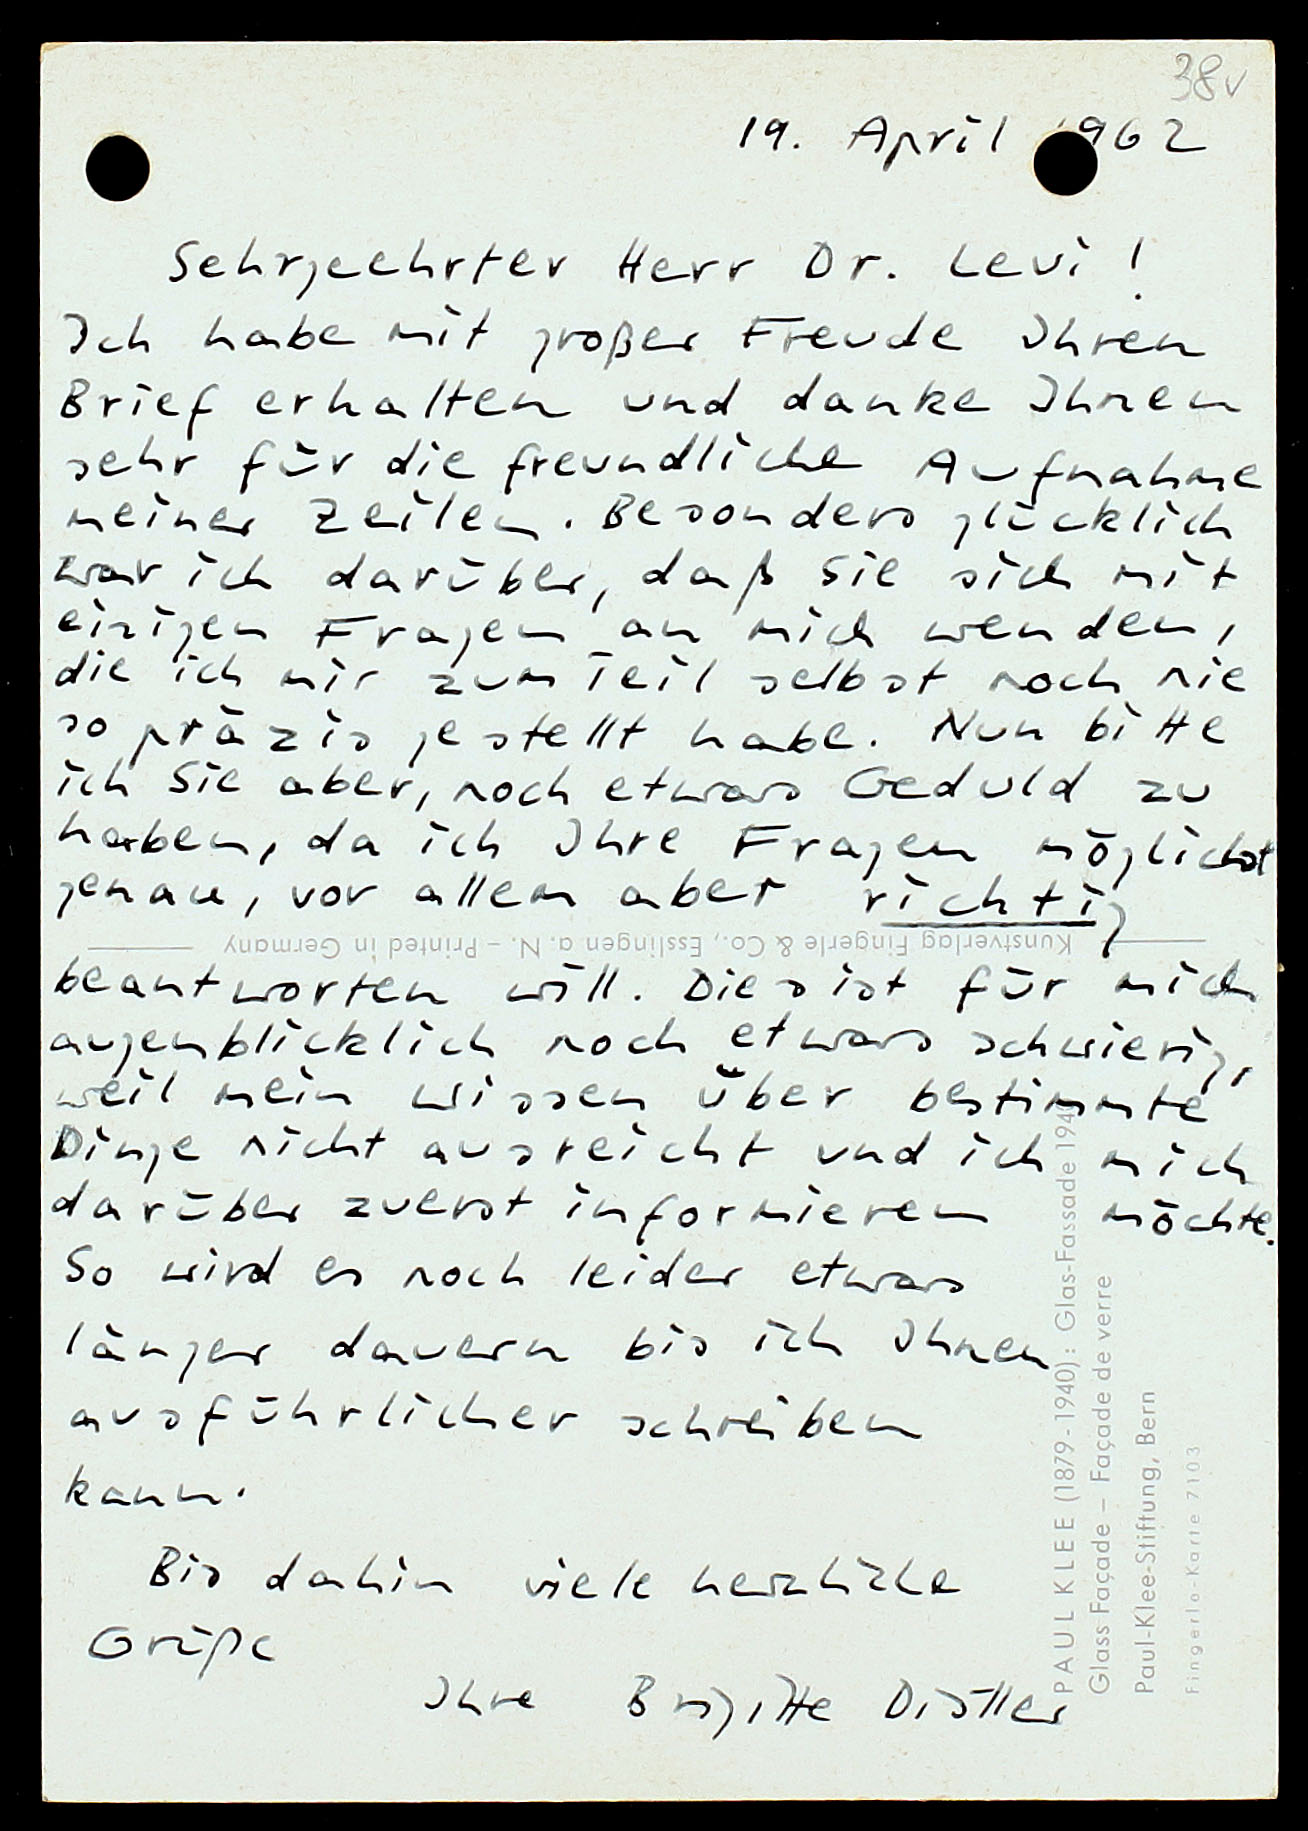 38v
19. April 1962
Sehrgeehrter Herr Dr. Levi!
Ich habe mit großer Freude Ihren
Brief erhalten und danke Ihnen
sehr für die freundliche Aufnahme
meiner Zeilen. Besonders glücklich
war ich darüber, daß Sie sich mit
einigen Fragen an mich wenden,
die ich mir zum Teil selbst noch nie
so präzis gestellt habe. Nun bitte
ich Sie aber, noch etwas Geduld zu
haben, da ich Ihre Fragen möglichst
genau, vor allem aber richtig
beantworten will. Dies ist für mich
augenblicklich noch etwas schwierig,
weil mein Wissen über bestimmte
Dinge nicht ausreicht und ich mich
darüber zuerst informieren möchte.
So wird es noch leider etwas
länger dauern bis ich Ihnen
ausführlicher schreiben
kann.
Bis dahin viele herzliche
Grüße
Ihre Brigitte Distler
Kunstverlag Fingerle & Co., Esslingen a. N. – Printed in Germany
PAUL KLEE (1879-1940): Glas-Fassade 1940
Glass Façade – Façade de verre
Paul-Klee-Stiftung, Bern
Fingerle-Karte 7103